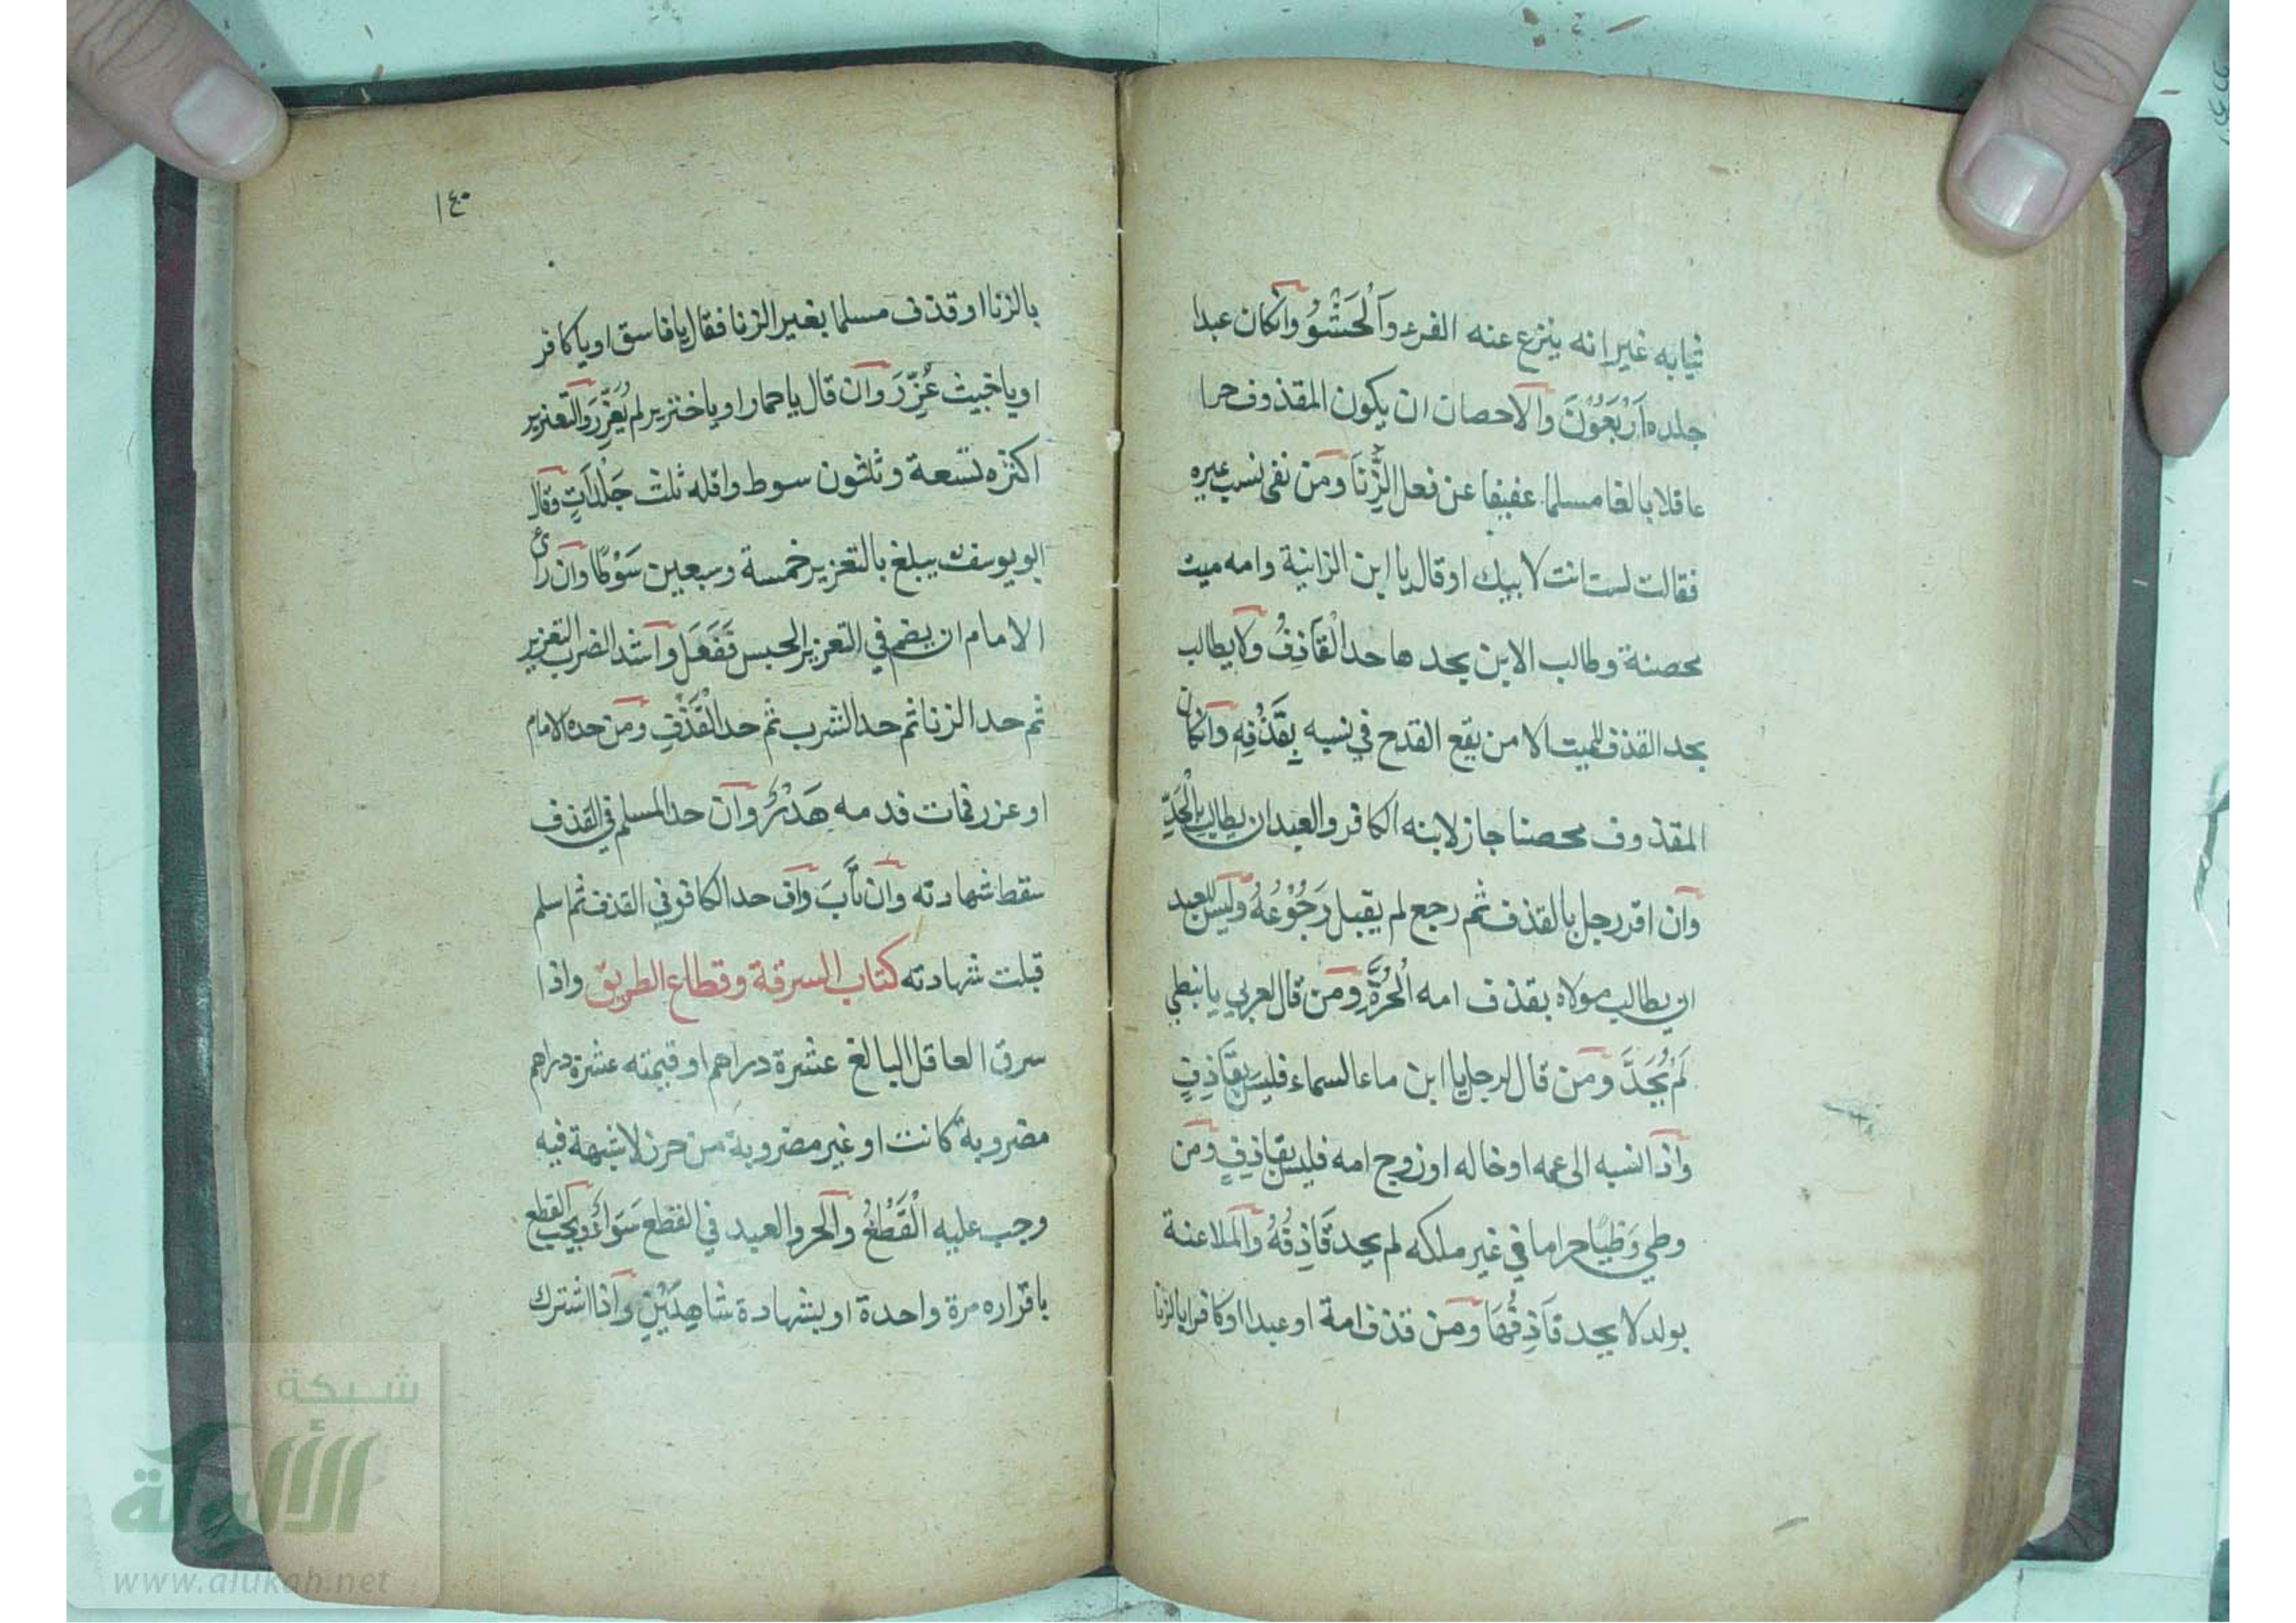 ثيابه غير انه ينزع عنه الفرء وَاَلْحَشْوُ وانكان عبدا
جلده اَرْبَعُوْنَ والاحصان ان يكون المقذوف حرا
عاقلا بالغا مسلما عفيفا عن فعل الزِّنَا ومن نفى نسب غيره
فقالت لست انت لابيك او قال يا ابن الزانية وامه ميت
محصنة وطالب الابن بحدها حد الْقَاذِفُ ولا يطالب
بحد القذف للميت الا من يقع القدح في نسبه بِقَذْفِهِ وانكان
المقذوف محصنا جاز لابنه الكافر والعبد ان يطالب بِالْحَدِّ
وان اقر رجل بالقذف ثم رجع لم يقبل رَجُوْعُهُ وليس للعبد
ان يطالب مولاه بقذف امه الْحُرَّةِ ومن قال لعربي يا نبطي
لَمْ يُحَدَّ ومن قال لرجل يا ابن ماء السماء فليس بِقَاذِفٍ
واذا نسبه الى عمه او خاله او زوج امه فليس بقاذِفٍ ومن
وطي وَطْيًا حراما في غير ملكه لم يحد قَاذِفُهُ والملاعنة
بولد لا يحد قَاذِفُهَا ومن قذف امة او عبدا او كافرا بالزنا
١٤٠
بالزنا او قذف مسلما بغير الزنا فقال يا فاسق او يا كافر
او يا خبيث عُزِّرَ وان قال يا حمار او يا خنزير لم يُعَزَّرْ والتعزير
اكثره تسعة وثلثون سوط واقله ثلث جَلْدَاتٍ وقال
ابو يوسف يبلغ بالتعزير خمسة وسبعين سَوْطًا وان رأى
الامام ان يضم في التعزير الحبس فَفَعَلَ واشد الضرب التعزير
ثم حد الزنا ثم حد الشرب ثم حد الْقَذْفِ ومن حده الامام
او عزر فمات فدمه هَدْرٌ وان حد المسلم في القذف
سقط شهادته وان تَابَ وان حد الكافر في القذف ثم اسلم
قبلت شهادته كتاب السرقة وقطاع الطريق واذا
سرق العاقل البالغ عشرة دراهم او قيمته عشرة دراهم
مضروبة كانت او غير مضروبة من حرز لا شبهة فيه
وجب عليه الْقَطْعُ والحر والعبد في القطع سَوَاءٌ ويجب القطع
باقراره مرة واحدة او بشهادة شَاهِدَيْنِ واذا اشترك
شبكة
الألوكة
www.alukah.net